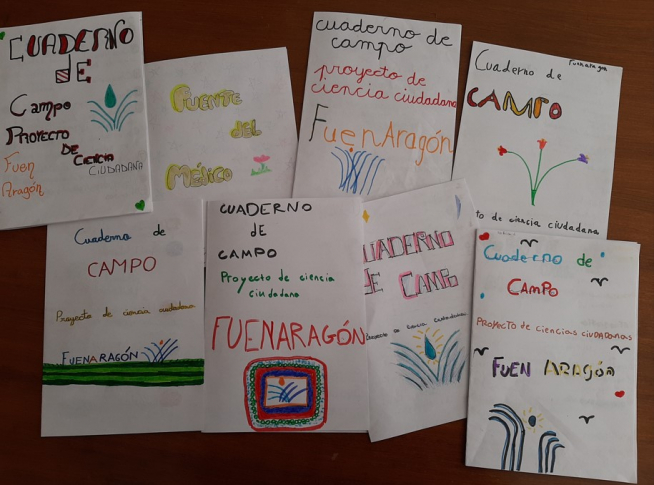 CUADERNO
DE
Campo
PROYECTO
DE
CIENCIA
CIUDADANA
Fuen
Aragón
FUENTE
DEL
MÉXICO
cuaderno de
campo
proyecto de
ciencia ciudadana
FuenAragón
Fuenaragón
Cuaderno de
CAMPO
to de ciencia ciudadana
Cuaderno de
CAMPO
Proyecto de ciencia ciudadana
FUENARAGÓN
CUADERNO
de
CAMPO
Proyecto de ciencia
ciudadana
FUENARAGÓN
UADERNO
DE CAMPO
Proyecto de ciencia ciudadana
Cuaderno de
CAMPO
PROYECTO DE CIENCIAS CIUDADANAS
FUEN ARAGÓN